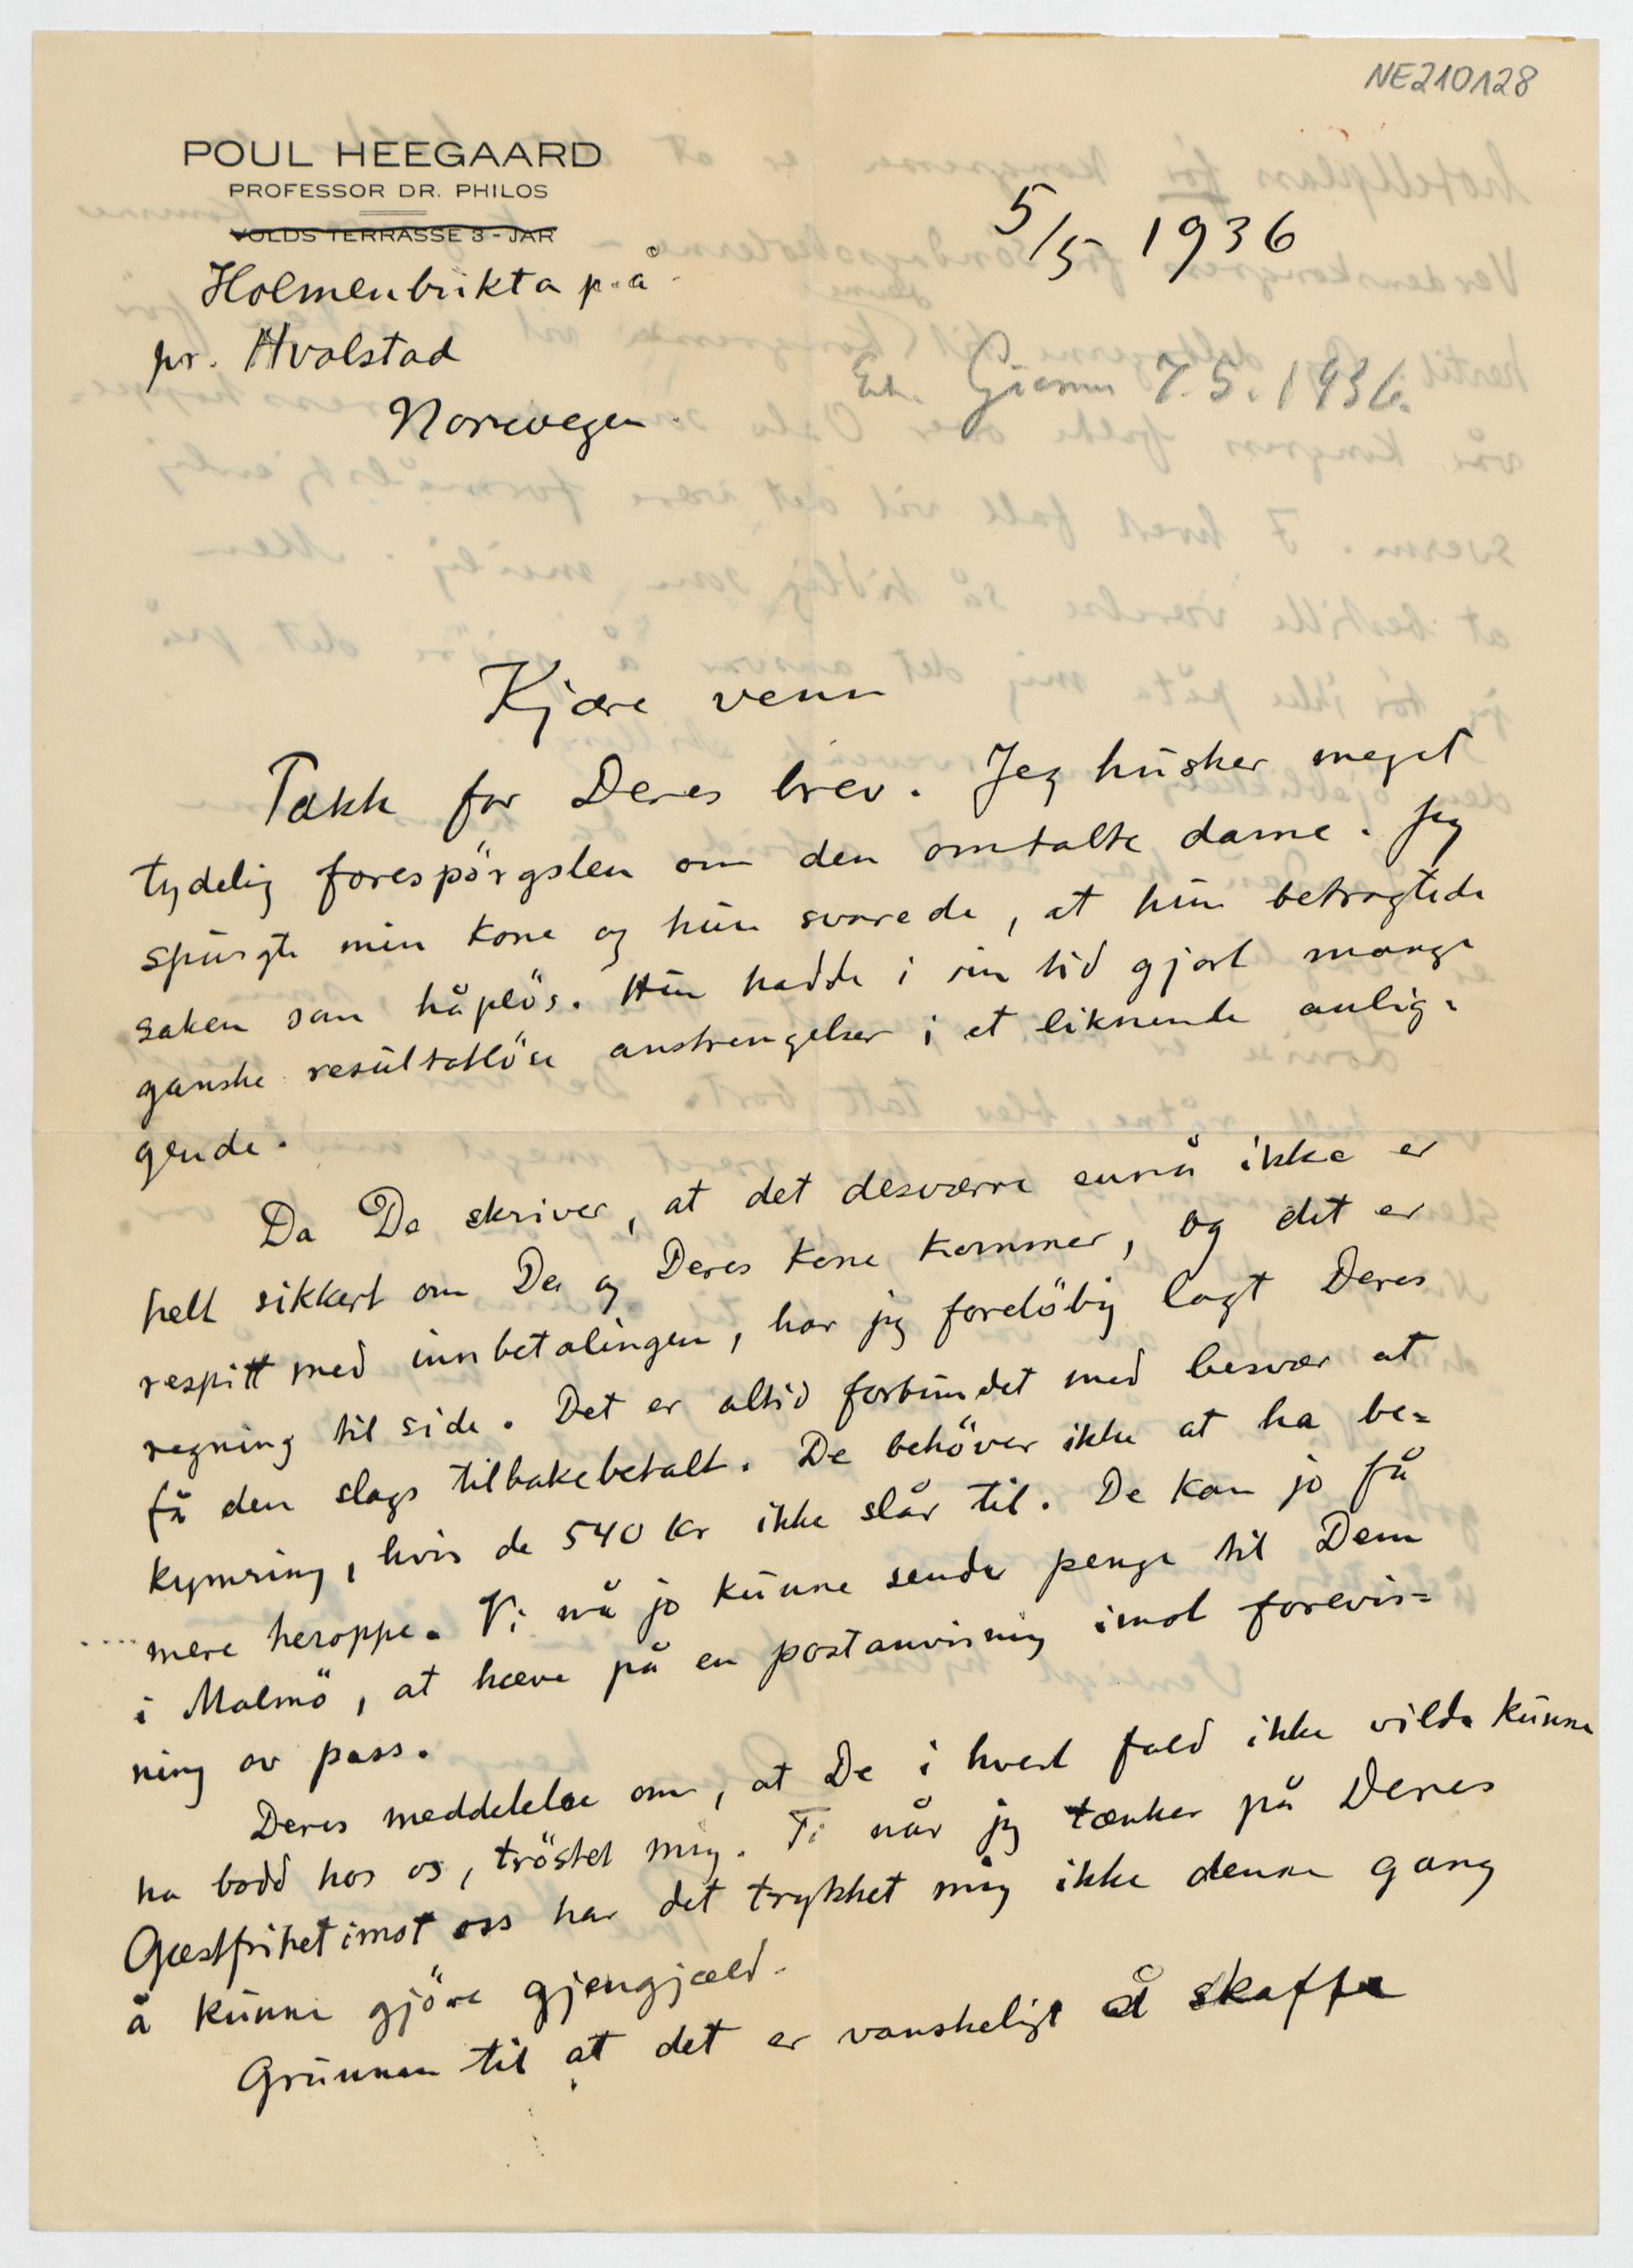 NE210128
POUL HEEGAARD
PROFESSOR DR. PHILOS
VOLDS TERRASSE 3 - JAR
5/5 1936
Holmenbukta p.å.
pr. Hvalstad
Norwegen.
7.5.1936.
Kjære venn
Takk for Deres brev. Jeg husker meget
tydelig forespörgslen om den omtalte dame. Jeg
spurgte min kone og hun svarede, at hun betragtede
saken som håplös. Hun hadde i sin tid gjort mange
ganske resultatlöse anstrengelser i et liknende anlig-
gende.
Da De skriver, at det desværre ennå ikke er
helt sikkert om De og Deres kone kommer, og det er
respitt med innbetalingen, har jeg forelöbig lagt Deres
regning til side. Det er altid forbundet med besvær at
få den slags tilbakebetalt. De behöver ikke at ha be=
kymring, hvis de 540 kr ikke slår til. De kan jo få
mere heroppe. Vi må jo kunne sende penge til Dem
i Malmö, at hæve på en postanvisning imot forevis=
ning av pass.
Deres meddelelse om, at De i hvert fald ikke vilde kunne
ha bodd hos os, tröstet mig. Ti når jeg tænker på Deres
Gæstfrihet imot oss har det trykket mig ikke denne gang
å kunne gjöre gjengjæld.
Grunnen til at det er vanskeligt å skaffe